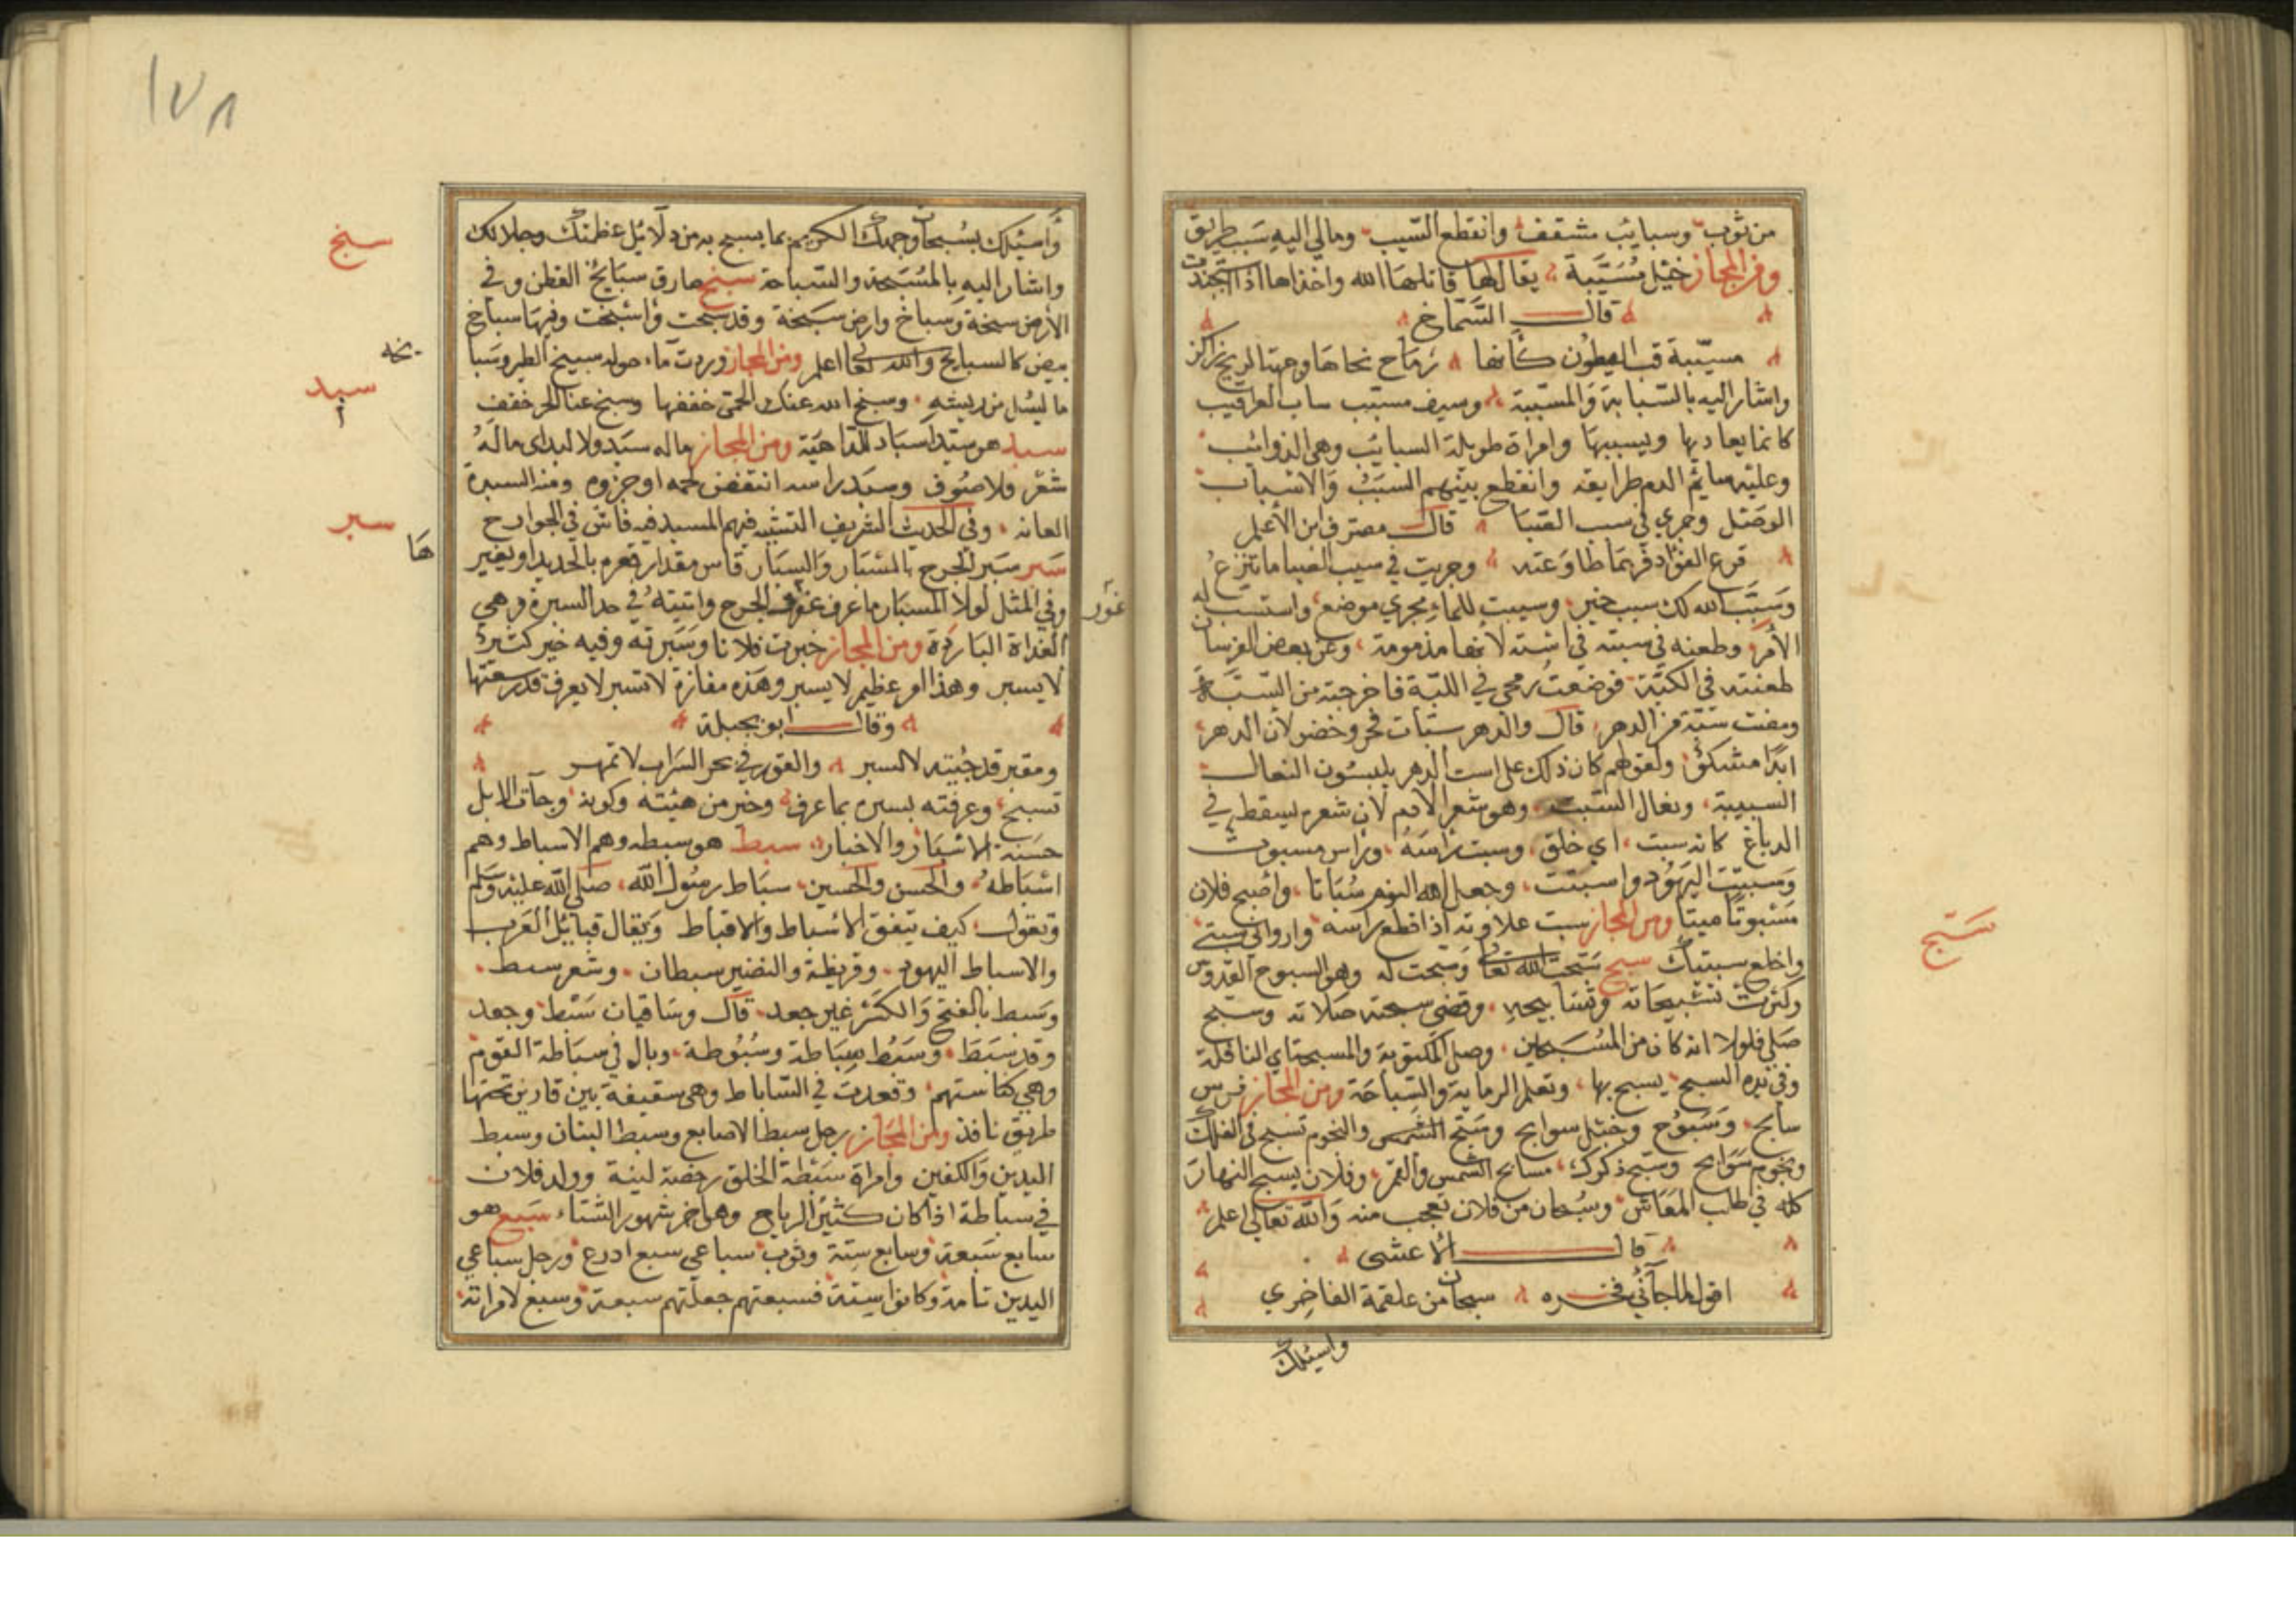 من ثوب وسبايب مشقفة وانقطع السبب ومالي اليه سبب طريق
ومن المجاز خيل مسببة يقال لها قاتلها الله واخذاها اذا استجيدت
قال الشماخ
مسببة قب البطون كأنها رماح نحاها وجهة الريح راكز
واشار اليه بالسبابة والمسببة وسيف مسبب ساب العراقيب
كانما يعاديها ويسببها وامراة طويلة السبايب وهي الذوائب
وعليه سبايب الدم طرايقه وانقطع بينهم السبب والاسباب
الوصل وجرى في سبب الصبا قال مصرف ابن الأعلم
قرع الفؤاد فربما طاوعته وجريت في سبب الصبا ما تنزع
وسبب الله لك سبب خير وسببت للماء مجرى موضع واستسب له
الأمر وطعنه في سبته في استه لانها مذمومة وعن بعض الفرسان
طعنته في الكبة فوضعت رمحي في اللبة فاخرجته من السبة
ومضت سبة من الدهر قال والدهر سبات فحر وخضر لأن الدهر
ابدا مشكو ولقولهم كان ذلك على است الدهر يلبسون النعال
السبتية ونعال السبت وهو شعر الادم لان شعره يسقط في
الدباغ كانه سبت اي خلق وسبت راسه وراس مسبوت
وسبتت اليهود واسبتت وجعل الله النوم سباتا واصبح فلان
مسبوتا ميتا ومن المجاز سبت علاوته اذا قطع راسه واروني سبتي
واخلع سبتيك سبح سبحت الله تعالى وسبحت له وهو السبوح القدوس
وكثرت تسبيحاته وتسابيحه وقضى سبحته صلاته وسبح
صلى فلولا انه كان من المسبحين وصلى المكتوبة والسبحة اي النافلة
وفي يده السبح يسبح بها وتعلم الرماية والسباحة ومن المجاز فرس
سابح وسبوح وخيل سوابح وسبح الشمس والنجوم تسبح في الفلك
ونجوم سوابح وسبح ذكرك مسابح الشمس والقمر وفلان يسبح النهار
كله في طلب المعاش وسبحان من فلان تعجب منه والله تعالى اعلم
قال الاعشى
اقول لما جآني فخره سبحان من علقمة الفاخري
واسئلك
سبح
١٧٨
واسئلك بسبحات وجهك الكريم بما يسبح به من دلائل عظمتك وجلالك
واشار اليه بالمسبحة والسباحة سبخ طارق سبايخ القطن وفي
الأرض سبخة وسباخ وارض سبخة وقد سبخت وأسبخت وفيها سباخ
بيض كالسبايخ والله تعالى اعلم ومن المجاز وردت ماء حوله سبيخ الطير وسبا
يخه
ما ينسل من ريشه وسبخ الله عنك الحمى خففها وسبخ عنا الحر خفف
سبد هو سبد اسباد للداهية ومن المجاز ماله سبد ولا لبد اى ماله
شعر ولا صوف وسبد راسه انتقض لحمه او جزوه ومنه السبدة
العانه وفي الحديث الشريف التسبيد فيهم المسبد فيه فاش في الجوارح
سبر سبر الجرح بالمسبار والسبار قاس مقدار قعره بالحديد او بغير
ها
وفي المثل لولا المسبار ما عرف غور الجرح واتيته في حد السبرة وهي
غور
الغداة الباردة ومن المجاز خبرت فلانا وسبرته وفيه خير كثير
لا يسبر وهذا امر عظيم لا يسبر وهذه مفازة لا تسبر لا يعرف قدر سعتها
وقال ابو نجيلة
ومقبر قد جبته لا السبر والقور في بحر السراب لا تمهر
تسبح وعرفته بسبره بما عرف وخبر من هيئته وكونه وجآت الابل
حسنة الاسبار والاخبار سبط هو سبطه وهم الاسباط وهم
اسباطه والحسن والحسين سباط رسول الله صلى الله عليه وسلم
وتقول كيف يتفق الاسباط والاقباط ويقال قبائل العرب
والاسباط اليهود وقريظة والنضير سبطان وشعر سبط
وسبط بالفتح والكسر غير جعد قال وساقيان سبط وجعد
وقد سبط وسبط سباطة وسبوطة وبال في سباطة القوم
وهي كناستهم وقعدت في الساباط وهي سقيفة بين دارين تحتها
طريق نافذ ومن المجاز رجل سبط الاصابع وسبط البنان وسبط
اليدين والكفين وامراة سبطة الخلق رخصة لينة وولد فلان
في سباطة اذا كان كثير الرياح وهو اخر شهور الشتاء سبع هو
سابع سبعة وسابع ستة وثوب سباعي سبع ادرع ورجل سباعي
اليدين تامه وكانوا ستة فسبعتهم جعلتهم سبعة وسبع لامراته
سبخ
سبد
سبر